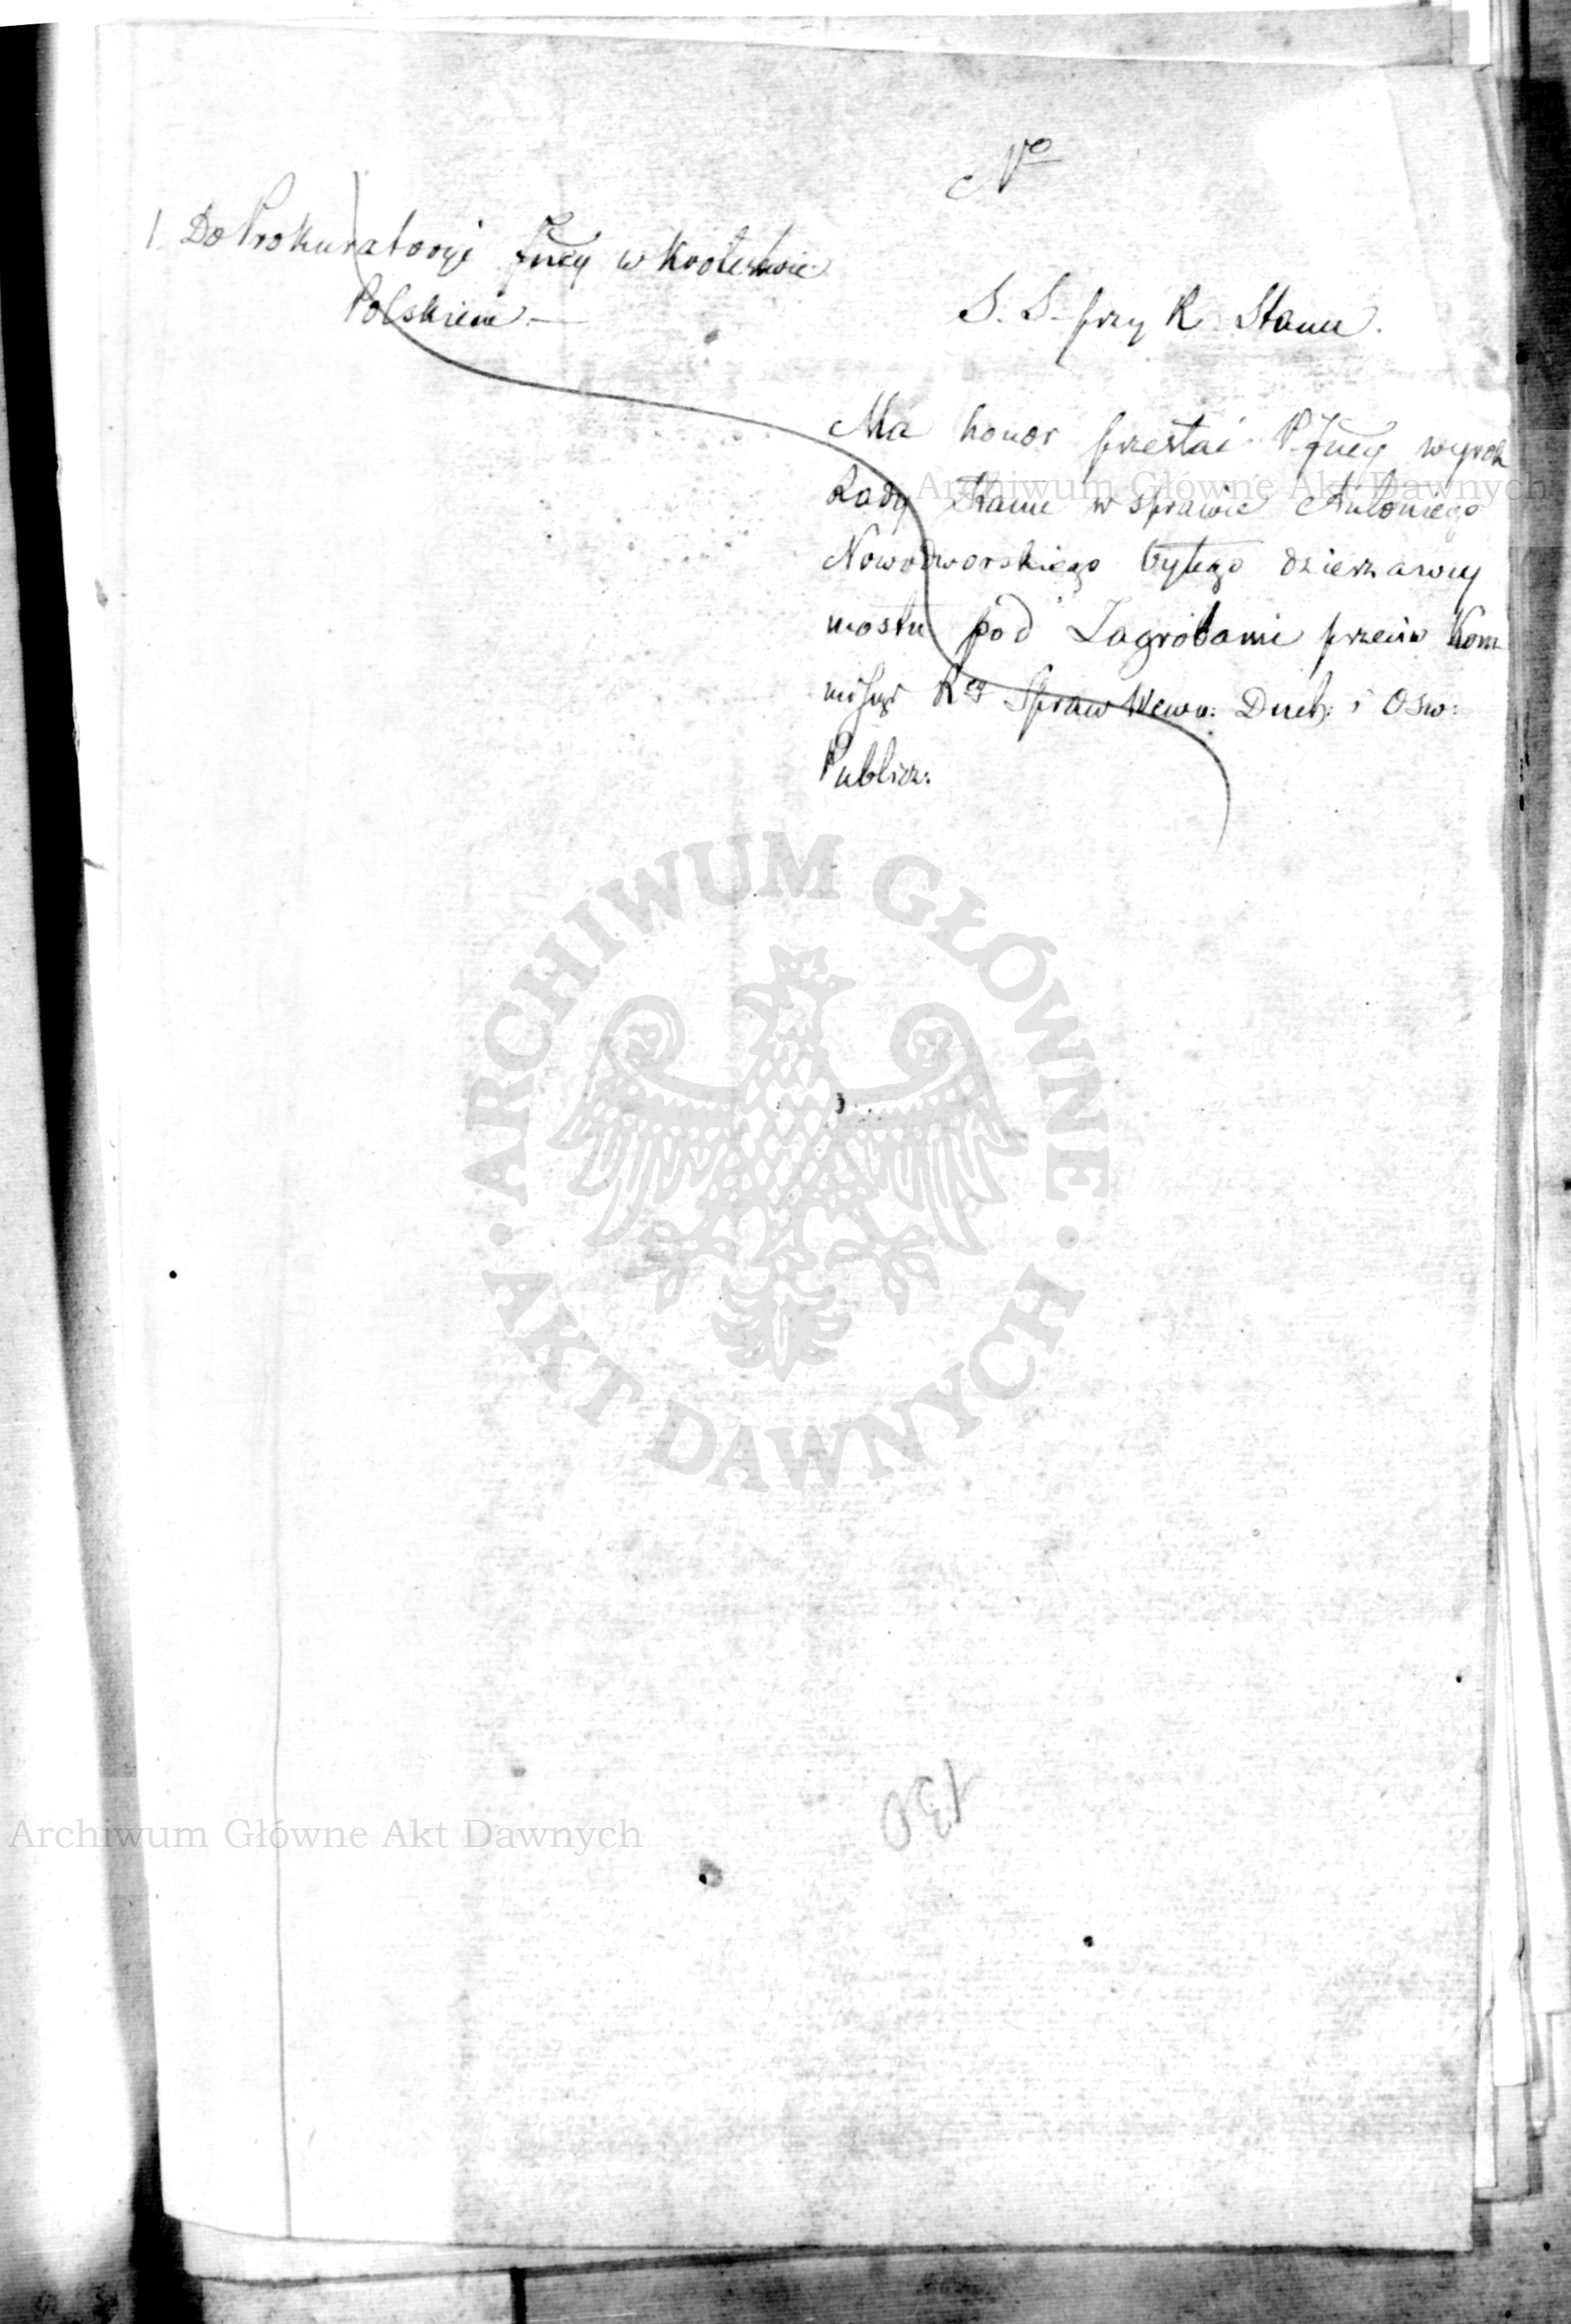 No
1. Do Prokuratoryi Jney w Krolestwie
Polskiem. —
S. S. przy R. Stanu.
Ma honor przesłać P. Jney wyrok
Rady Stanu w sprawie Antoniego
Nowodworskiego byłego dzierzawcy
mostu pod Zagrobami przeciw Kom
missyi R. Spraw Wewn: Duch: i Osw:
Publicz:
ARCHIWUM GŁÓWNE
AKT DAWNYCH
Archiwum Główne Akt Dawnych
130
Archiwum Główne Akt Dawnych